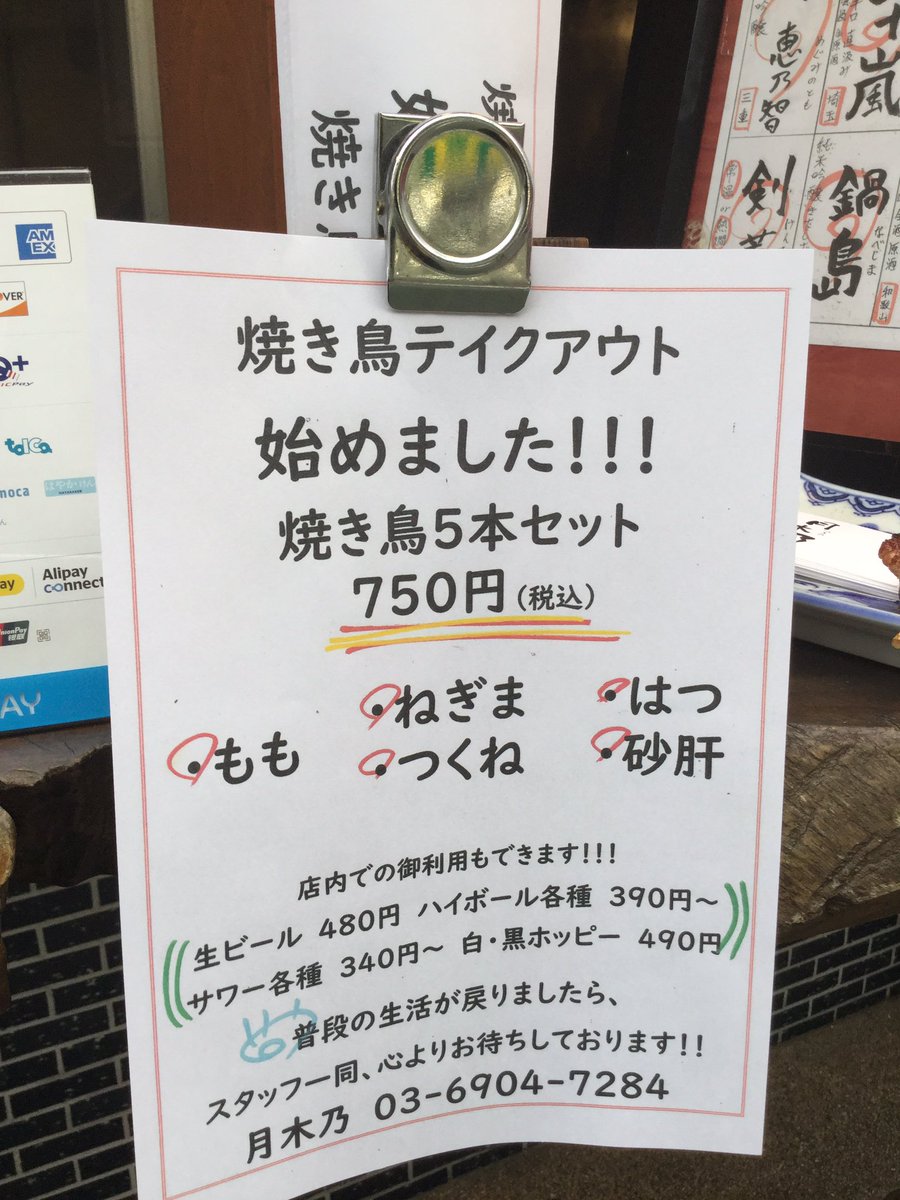 焼き
恵乃智
めぐみのとも
三重
埼玉
嵐
剣
鍋島
なべじま
和歌山
AM
EX
OVER
toica
moca
はやかけん
Pay
Alipay
connect
UnionPay
銀联
PAY
焼き鳥テイクアウト
始めました!!!
焼き鳥5本セット
750円(税込)
・もも
・ねぎま
・つくね
・はつ
・砂肝
店内での御利用もできます!!!
生ビール 480円 ハイボール各種 390円～
サワー各種 340円～ 白・黒ホッピー 490円
普段の生活が戻りましたら、
スタッフ一同、心よりお待ちしております!!
月木乃 03-6904-7284